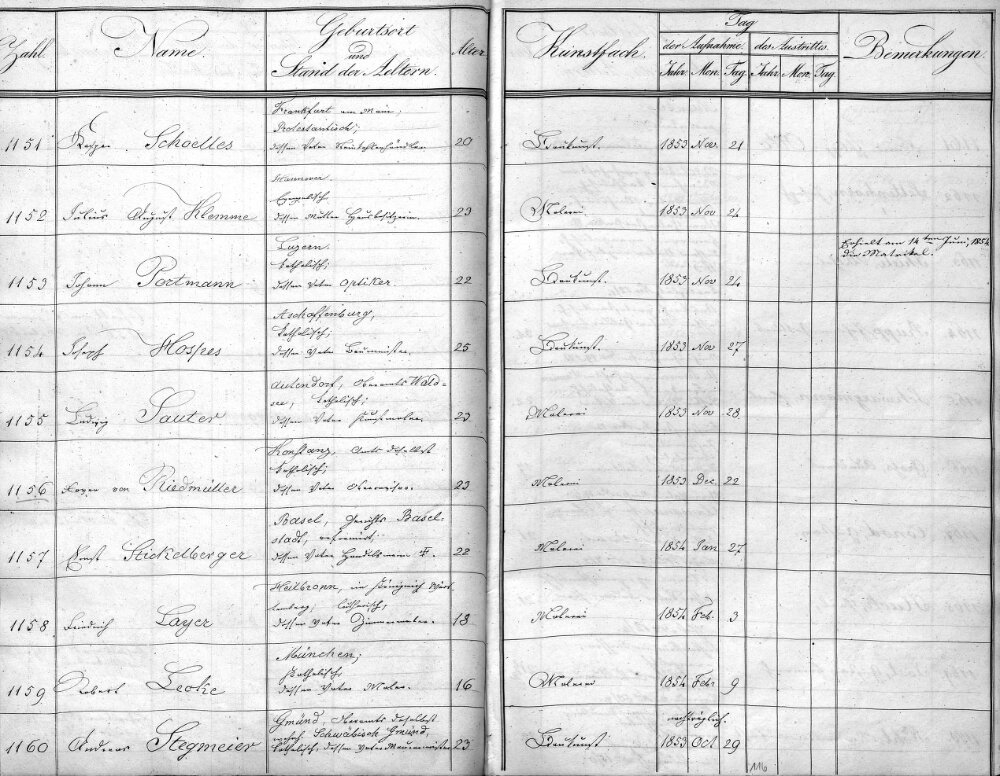 Zahl. Name. Geburtsort und Stand der Aeltern. Alter Kunstfach. Tag der Aufnahme. des Austrittes. Bemerkungen.
Jahr Mon. Tag Jahr Mon. Tag
Frankfurt am Main,
Protestantisch;
1151 Schoelles dessen Vater 20 Baukunst. 1853 Nov. 21
Hannover.
Evangelisch
1152 Julius August Klemme dessen Mutter Hausbesitzerin. 23 Malerei. 1853 Nov 24
Luzern. Erhielt am 14ten Juni 1854
katholisch; die Matrikel.
1153 Johann Portmann dessen Vater Optiker. 22 Baukunst. 1853 Nov 24
Aschaffenburg,
katholisch;
1154 Joseph Hospes dessen Vater Baumeister. 25 Baukunst. 1853 Nov 27
Aulendorf, Oberamts Wald-
see, katholisch;
1155 Ludwig Sauter dessen Vater 23 Malerei 1853 Nov 28
Konstanz, Amts daselbst
katholisch;
1156 von Riedmüller dessen Vater 23 Malerei 1853 Dec. 22
Basel, Gerichts Basel-
stadt, reformirt;
1157 Ernst Stückelberger dessen Vater Handelsmann †. 22 Malerei 1854 Jan 27
Heilbronn, im Königreich Würt-
temberg, lutherisch,
1158 Friedrich Layer dessen Vater Zimmermeister. 18 Malerei 1854 Feb. 3
München;
katholisch;
1159 Robert Lecke dessen Vater Maler. 16 Malerei 1854 Feb 9
Gmünd, Oberamts daselbst nachträglich.
Schwäbisch Gmünd,
1160 Andreas Stegmeier katholisch, dessen Vater Maurermeister 23 Baukunst 1853 Oct 29
116